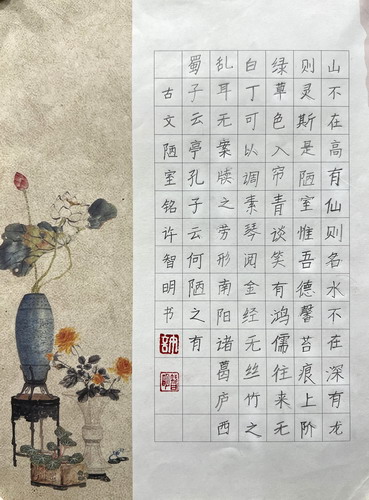 山不在高有仙则名水不在深有龙
则灵斯是陋室惟吾德馨苔痕上阶
绿草色入帘青谈笑有鸿儒往来无
白丁可以调素琴阅金经无丝竹之
乱耳无案牍之劳形南阳诸葛庐西
蜀子云亭孔子云何陋之有
古文陋室铭许智明书